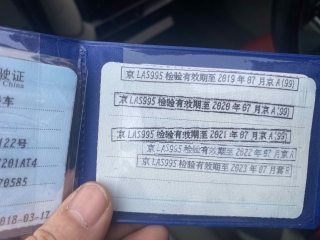 驶证
China
车
122号
7201AT4
70585
018-03-17
京 LAS995 检验有效期至 2019 年 07 月京 A(99)
京 LAS995 检验有效期至 2020 年 07 月京 A(99)
京 LAS995 检验有效期至 2021 年 07 月京 A(99)
京 LAS995 检验有效期至 2022 年 07 月京 A
京 LAS995 检验有效期至 2023 年 07 月